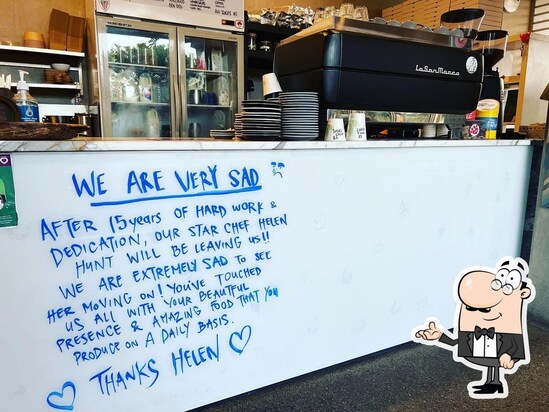 LaSanMarco
WE ARE VERY SAD
AFTER 15 years OF HARD WORK &
DEDICATION, OUR STAR CHEF HELEN
HUNT WILL BE LEAVING US!!
WE ARE EXTREMELY SAD TO SEE
HER MOVING ON! YOU'VE TOUCHED
US ALL WITH YOUR BEAUTIFUL
PRESENCE & AMAZING FOOD THAT YOU
PRODUCE ON A DAILY BASIS.
THANKS HELEN